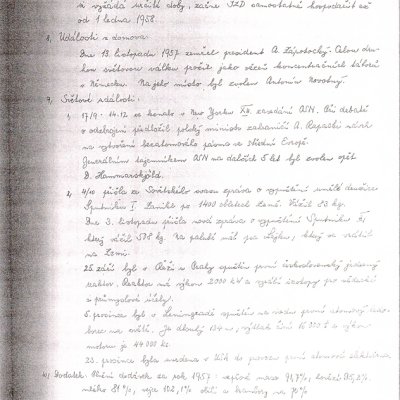 si vyžádá určité doby, začne JZD samostatně hospodařit až
od 1 ledna 1958.
8, Události z domova:
Dne 13. listopadu 1957 zemřel president A. Zápotocký. Celou dru-
hou světovou válku prožil jako vězeň koncentračních táborů
v Německu. Na jeho místo byl zvolen Antonín Novotný.
9, Světové události.
1, 17/9 - 14.12 se konalo v New Yorku XII. zasedání OSN. Při debatě
o odzbrojení předložil polský ministr zahraničí A. Rapacki návrh
na vytvoření bezatomového pásma ve střední Evropě.
Generálním tajemníkem OSN na dalších 5 let byl zvolen opět
D. Hammarskjöld.
2, 4/10 přišla ze Sovětského svazu zpráva o vypuštění umělé družice
Sputniku I. Letěla po 1400 oblétech Země. Vážil 83 kg.
Dne 3. listopadu přišla nová zpráva o vypuštění Sputniku II,
který vážil 508 kg. Na palubě měl psa Lajku, který se vrátil
na Zemi.
25. září byl v Řeži u Prahy spuštěn první československý jaderný
reaktor. Reaktor má výkon 2000 kW a vyrábí izotopy pro vědecké
a průmyslové účely.
5. prosince byl v Leningradě spuštěn na vodu první atomový ledo-
borec na světě. Je dlouhý 134 m, výtlak činí 16 000 t a výkon
motorů je 44 000 ks.
23. prosince byla uvedena v USA do provozu první atomová elektrárna.
10, Dodatek. Plnění dodávek za rok 1957: vepřové maso 91,7%, hovězí 115,2%
mléko 81%, vejce 102,1% obilí a brambory na 70%